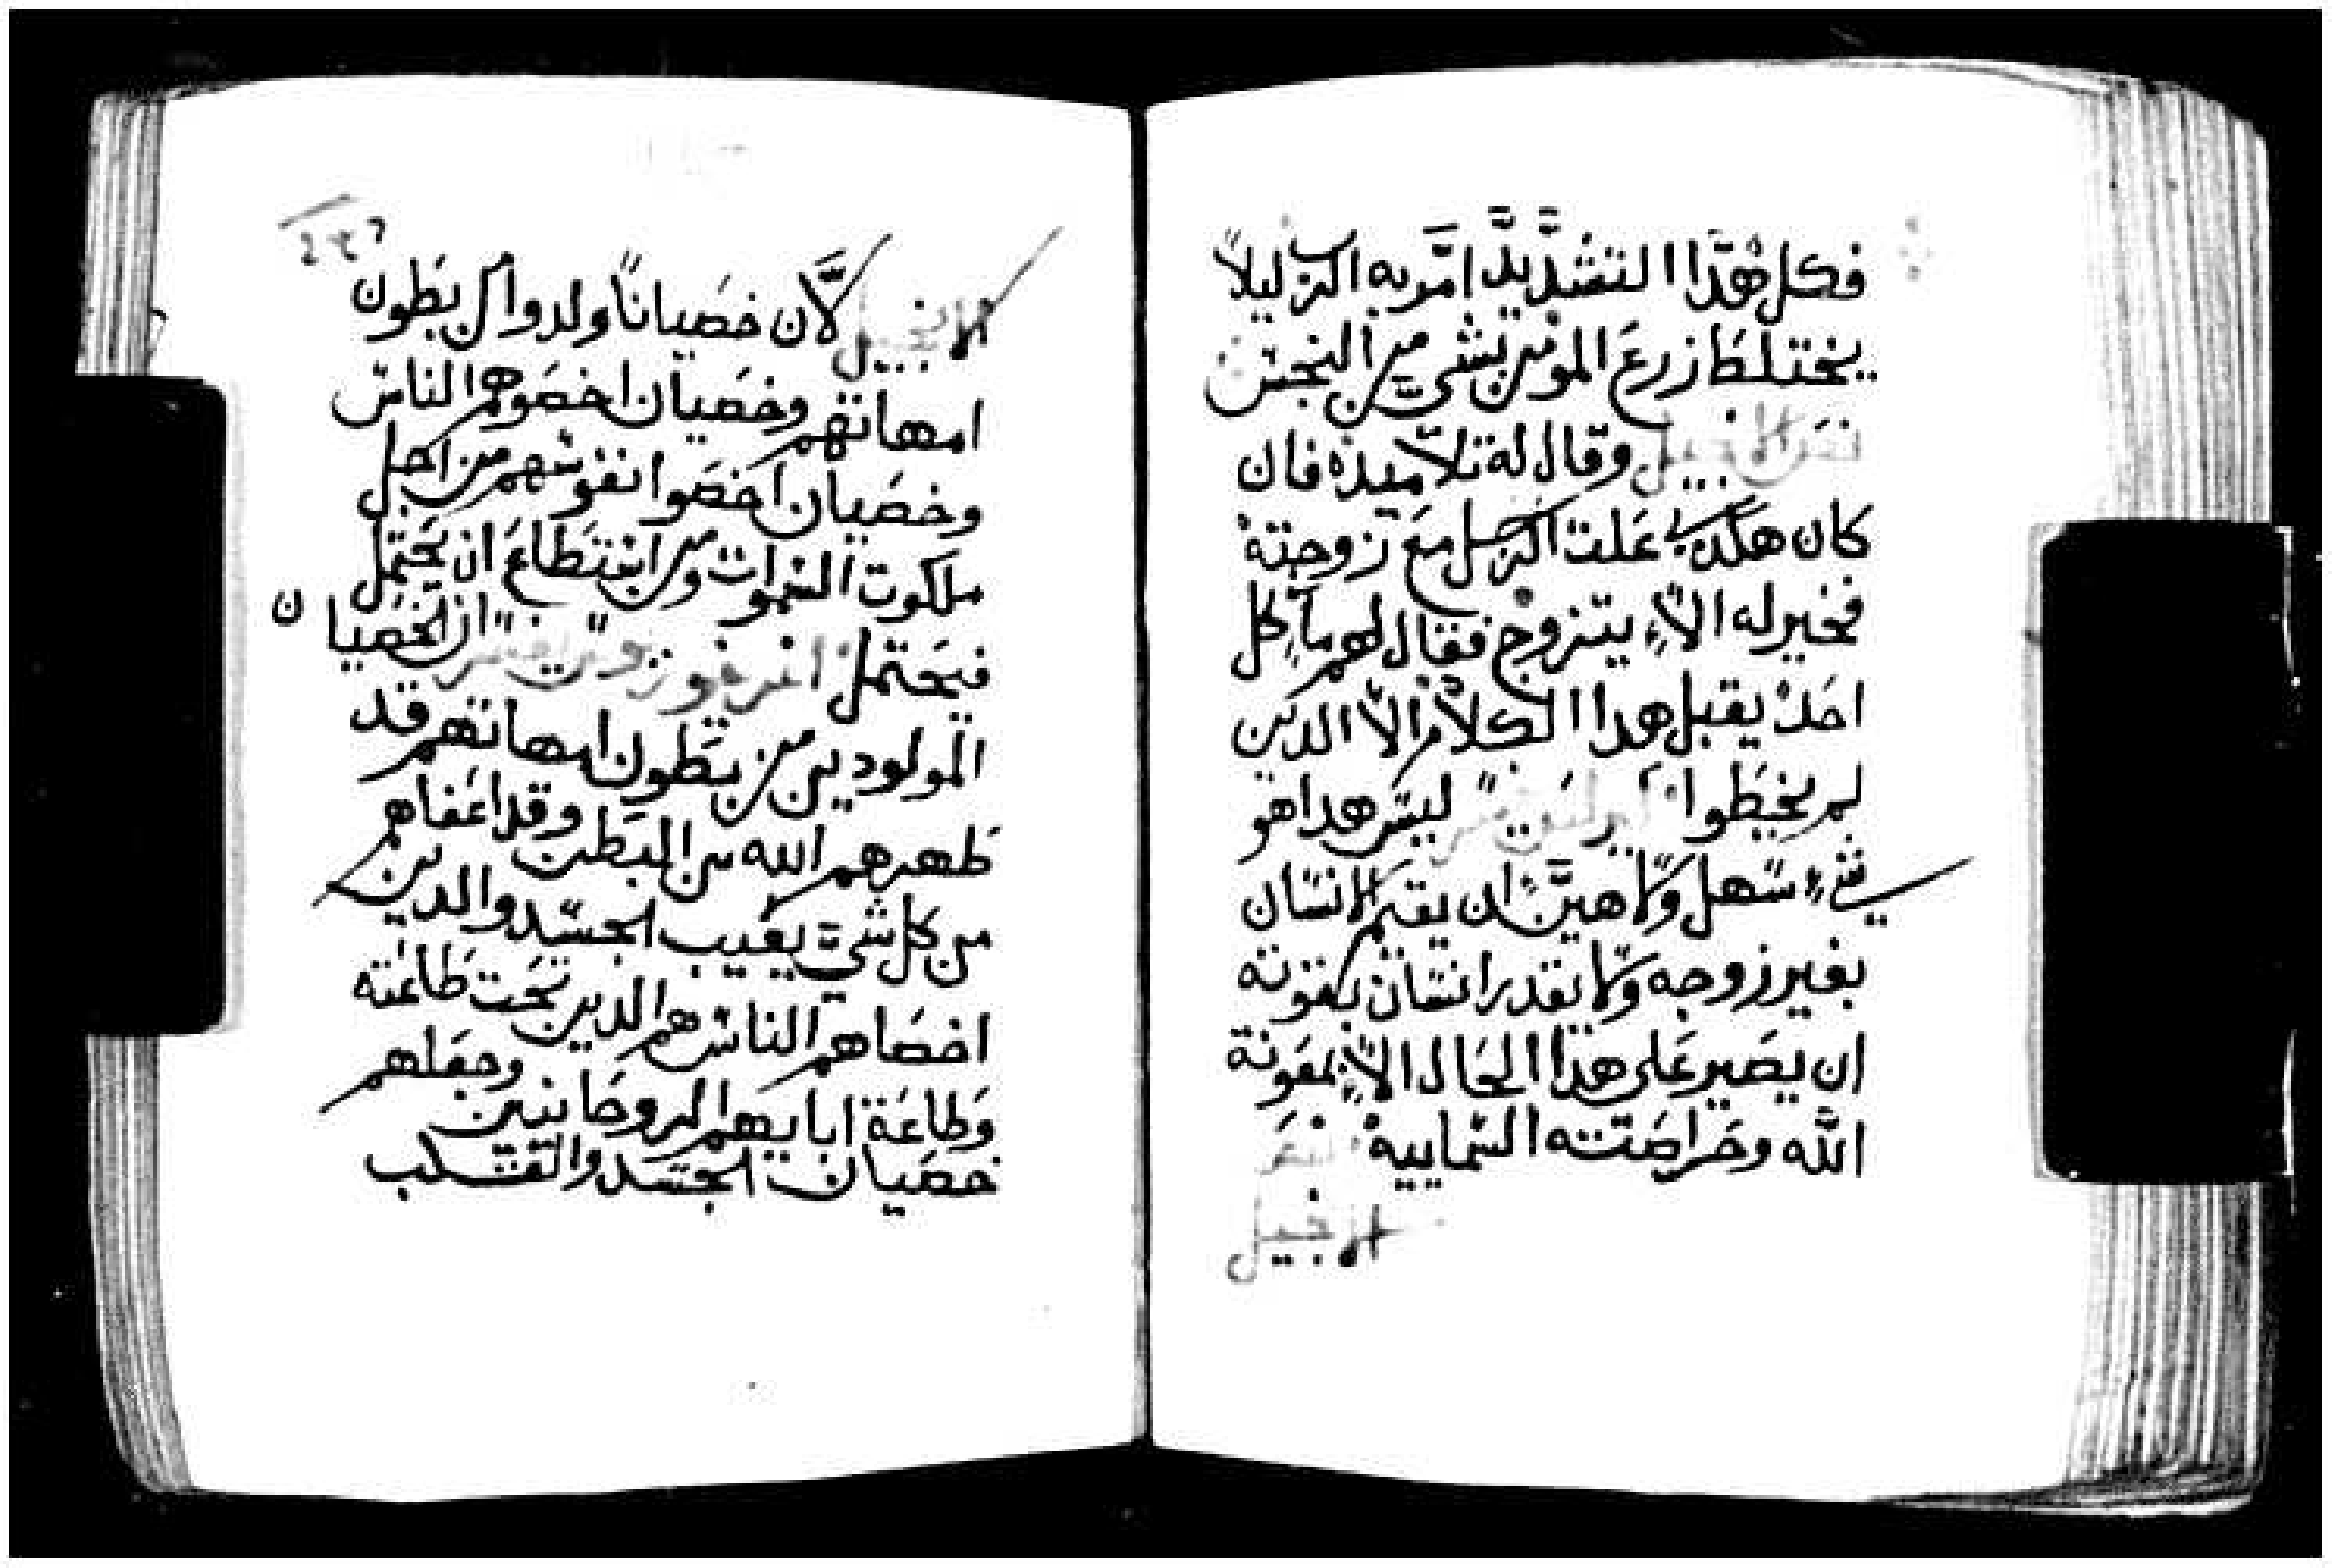 فكل هذا التشديد امر به الرب ليلاً
يختلط زرع المومن بشي من النجس
نص الانجيل وقال له تلاميذه فان
كان هكذي علت الرجل مع زوجته
فخير له الاّ يتزوج فقال لهم ما كل
احد يقبل هدا الكلام الا الدين
لم يخطوا ليس هدا هو
شيء سهل ولا هين ان يقيم الانسان
بغير زوجه ولا يقدر انسان بقوته
ان يصير على هدا الحال الا بمعونة
الله وحراصته السماييه نص
الانجيل
الانجيل لان خصياناً ولدوا من بطون
امهاتهم وخصيان اخصوهم الناس
وخصيان اخصوا نفوسهم من اجل
ملكوت السموات ومن استطاع ان يحتمل
فيحتمل ان الخصيان
المولودين من بطون امهاتهم قد
طهرهم الله من البطن وقد اعفاهم
من كل شي يعيب الجسد والدين
اخصاهم الناس هم الدين تحت طاعته
وطاعة ابايهم الروحانيين وجعلهم
خصيان الجسد والقلب